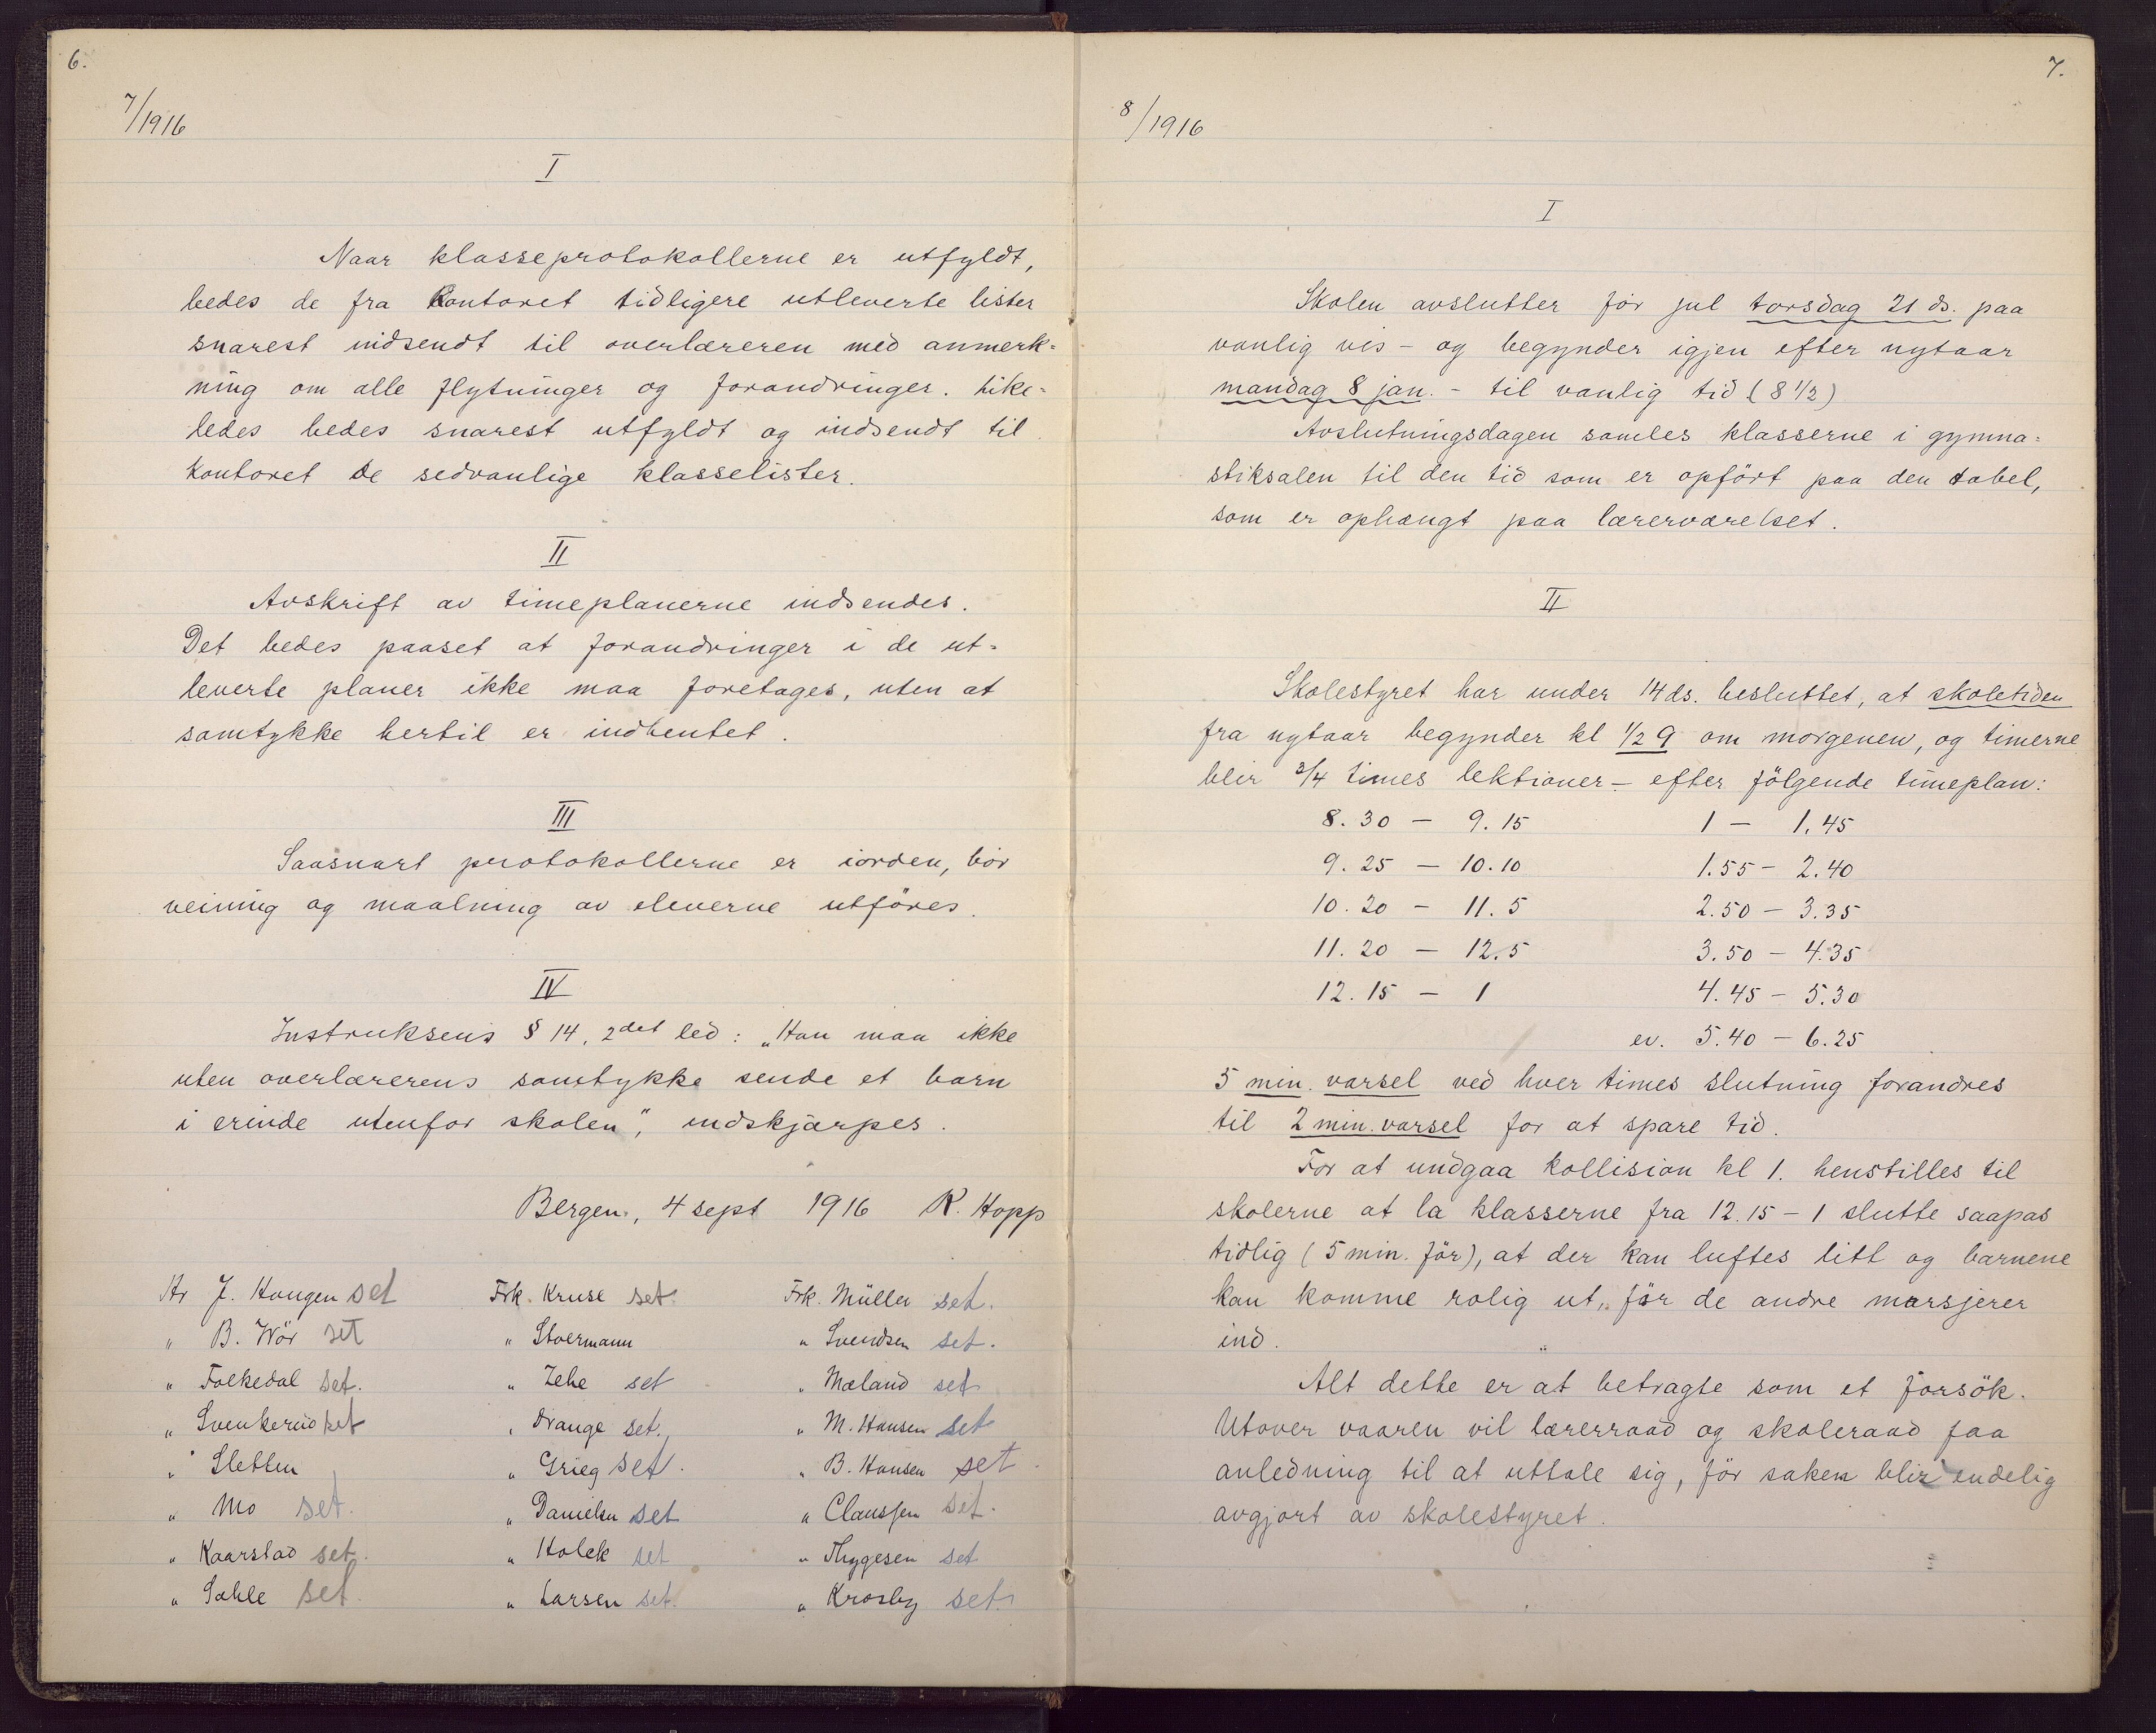 6.
7/1916
I
Naar klasseprotokollerne er utfyldt,
bedes de fra kontoret tidligere utleverte lister
snarest indsendt til overlæreren med anmerk=
ning om alle flytninger og forandringer. Like=
ledes bedes snarest utfyldt og indsendt til
kontoret de sedvanlige klasselister.
II
Avskrift av timeplanerne indsendes.
Det bedes paaset at forandringer i de ut=
leverte planer ikke maa foretages, uten at
samtykke hertil er indhentet.
III
Saasnart protokollerne er iorden, bör
veining og maalning av eleverne utföres.
IV
Instruksens § 14, 2det led: „Han maa ikke
uten overlærerens samtykke sende et barn
i erinde utenfor skolen", indskjærpes.
Bergen, 4 sept 1916 R. Hopp
Hr J. Haugen set Frk. Kruse set. Frk. Müller set.
" B. Wör set " Stoermann " Svendsen set.
" Folkedal set. " Zehe set " Mæland set
" Svenkerud set " Drange set. " M. Hansen set
" Sletten " Grieg set. " B. Hansen set.
" Mo set. " Danielsen set " Claussen set.
" Kaarstad set. " Holck set " Thygesen set
" Sæhle set. " Larsen set. " Krosby set.
7.
8/1916
I
Skolen avslutter för jul torsdag 21 ds. paa
vanlig vis – og begynder igjen efter nytaar
mandag 8 jan. – til vanlig tid (8 1/2)
Avslutningsdagen samles klasserne i gymna=
stiksalen til den tid som er opfört paa den tabel,
som er ophængt paa lærerværelset.
II
Skolestyret har under 14 ds. besluttet, at skoletiden
fra nytaar begynder kl 1/2 9 om morgenen, og timerne
blir 3/4 times lektioner – efter fölgende timeplan:
8.30 – 9.15 1 – 1.45
9.25 – 10.10 1.55 – 2.40
10.20 – 11.5 2.50 – 3.35
11.20 – 12.5 3.50 – 4.35
12.15 – 1 4.45 – 5.30
ev. 5.40 – 6.25
5 min. varsel ved hver times slutning forandres
til 2 min. varsel for at spare tid.
For at undgaa kollision kl 1. henstilles til
skolerne at la klasserne fra 12.15 – 1 slutte saapas
tidlig (5 min. för), at der kan luftes litt og barnene
kan komme rolig ut, för de andre marsjerer
ind.
Alt dette er at betragte som et forsök.
Utover vaaren vil lærerraad og skoleraad faa
anledning til at uttale sig, för saken blir endelig
avgjort av skolestyret.